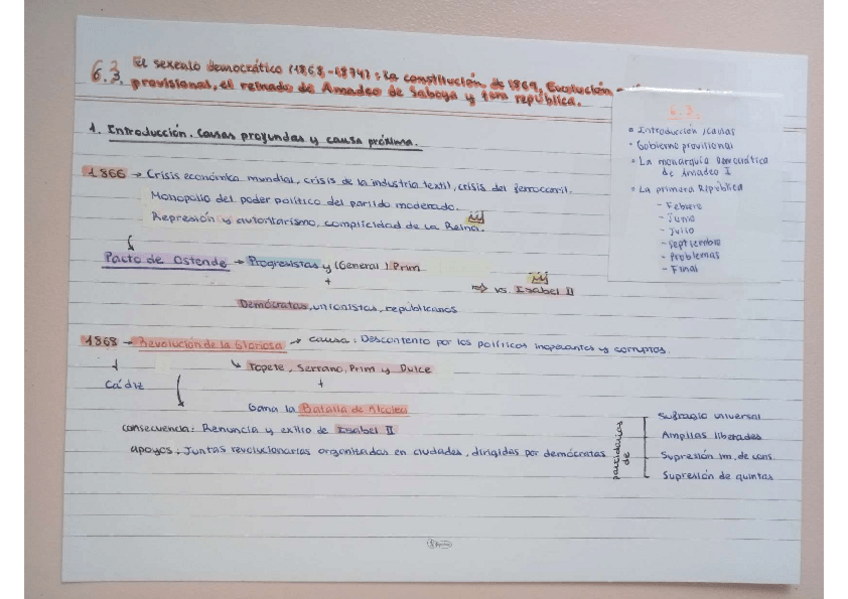 6.3. El sexenio democrático (1868-1874): La constitución de 1869, Evolución
provisional, el reinado de Amadeo de Saboya y república.
6.3.
• Introducción /causas
• Gobierno provisional
• La monarquía Democrática
de Amadeo I
• La primera República
- Febrero
- Junio
- Julio
- Septiembre
- Problemas
- Final
1. Introducción. Causas profundas y causa próxima.
1866 → Crisis económica mundial, crisis de la industria textil, crisis del ferrocarril.
Monopolio del poder político del partido moderado.
Represión y autoritarismo, complicidad de la Reina.
Pacto de Ostende → Progresistas y (General) Prim
+
⇒ vs Isabel II
Demócratas, unionistas, republicanos
1868 → Revolución de la Gloriosa → causa: Descontento por los políticos inoperantes y corruptos.
↓ ↳ Topete, Serrano, Prim y Dulce
Cádiz +
Gana la Batalla de Alcolea
consecuencia: Renuncia y exilio de Isabel II
apoyos: Juntas revolucionarias organizadas en ciudades, dirigidas por demócratas
partidarios
de
Sufragio universal
Amplias libertades
Supresión im. de cons.
Supresión de quintas